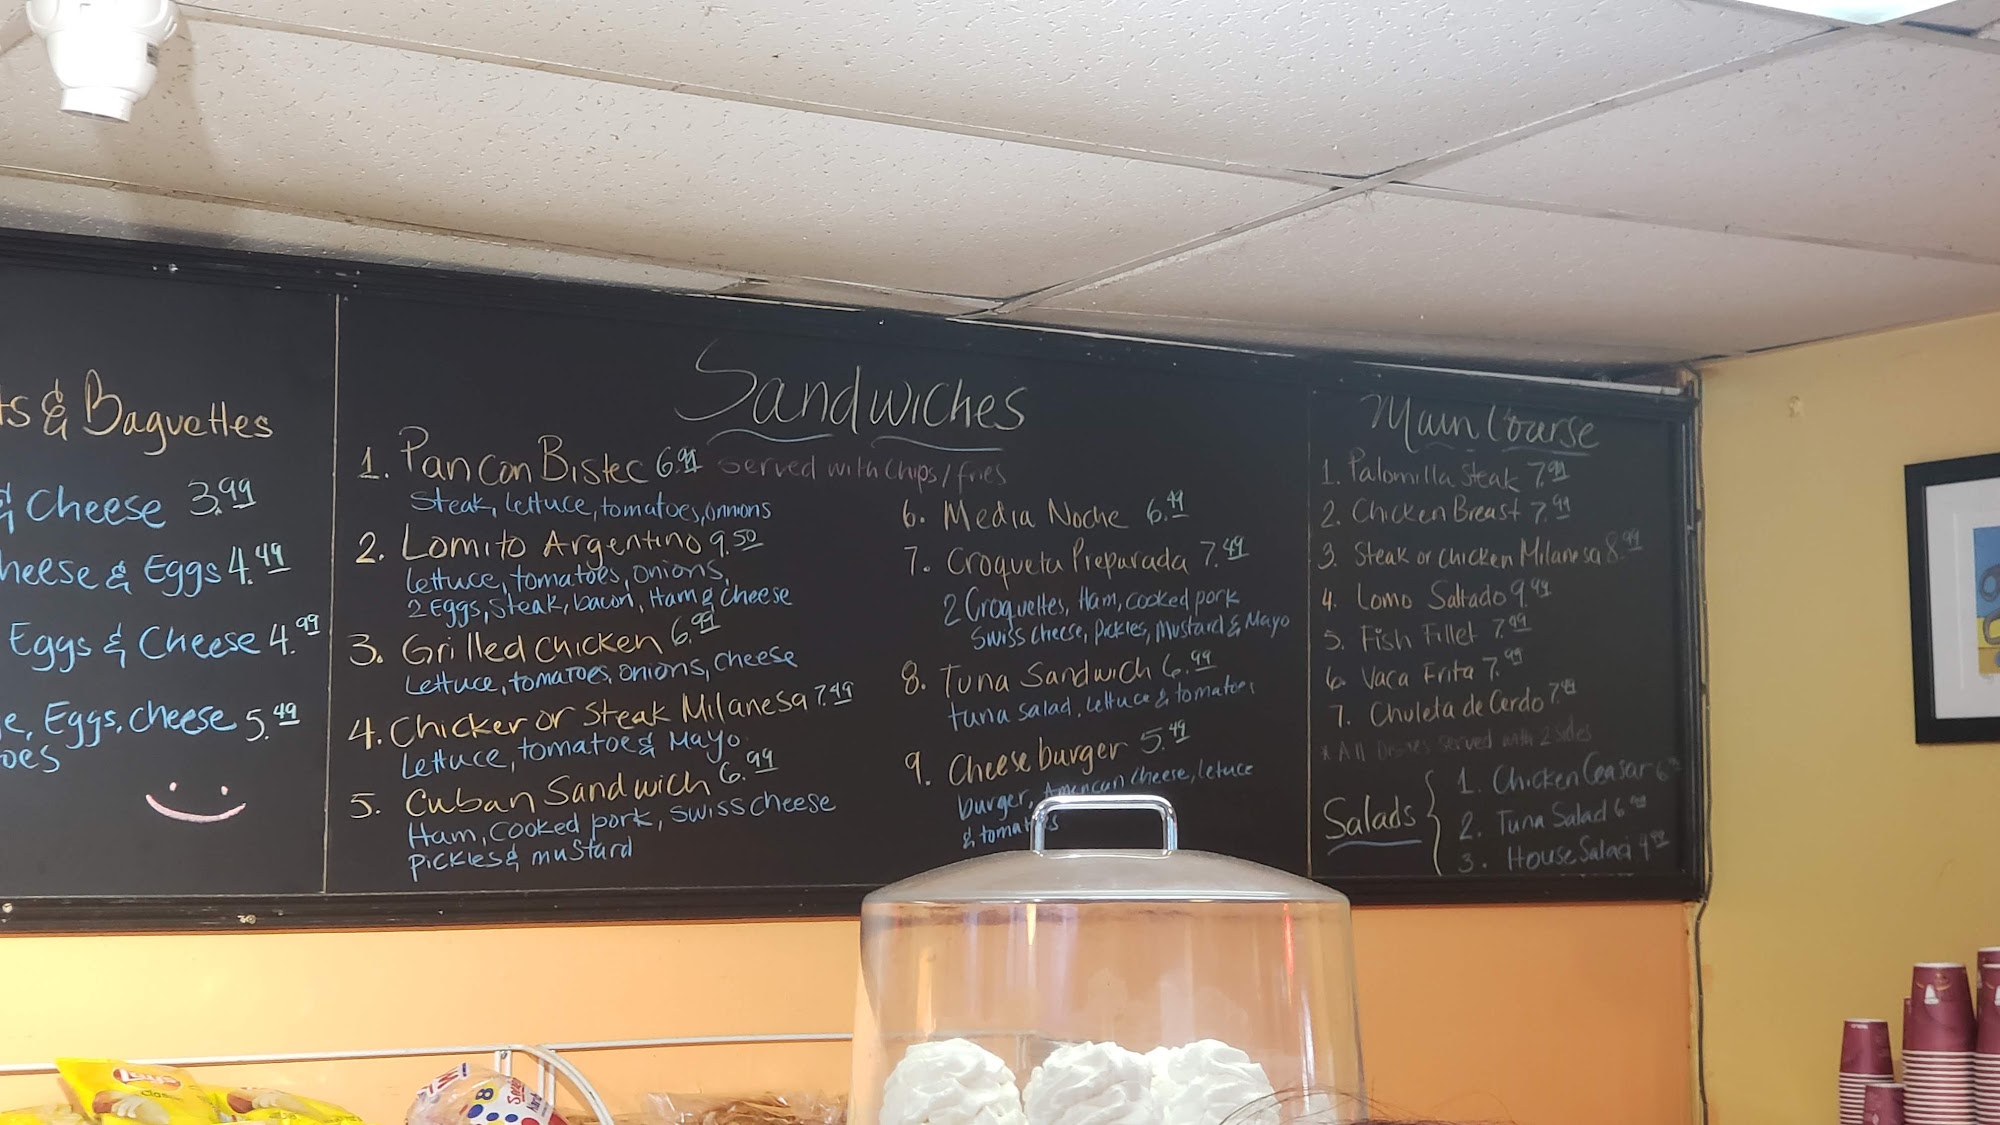 ts & Baguettes
& Cheese 3.99
heese & Eggs 4.49
Eggs & Cheese 4.99
e, Eggs, Cheese 5.49
oes
Sandwiches
1. Pan Con Bistec 6.99 Served with chips/fries
Steak, lettuce, tomatoes, onnions
2. Lomito Argentino 9.50
lettuce, tomatoes, onions,
2 Eggs, Steak, bacon, Ham & Cheese
3. Grilled Chicken 6.99
Lettuce, tomatoes, onions, cheese
4. Chicken or Steak Milanesa 7.49
Lettuce, tomatoe & Mayo
5. Cuban Sandwich 6.99
Ham, cooked pork, swiss cheese
pickles & mustard
6. Media Noche 6.49
7. Croqueta Preparada 7.49
2 Croquettes, Ham, cooked pork
Swiss cheese, pickles, Mustard & Mayo
8. Tuna Sandwich 6.99
tuna salad, lettuce & tomatoe,
9. Cheese burger 5.49
burger, American cheese, letuce
& tomatoes
Main Course
1. Palomilla Steak 7.99
2. Chicken Breast 7.99
3. Steak or chicken Milanesa 8.99
4. Lomo Saltado 9.49
5. Fish Fillet 7.99
6. Vaca Frita 7.99
7. Chuleta de Cerdo 7.49
* All Dishes served with 2 sides
Salads
1. Chicken Ceasar 6
2. Tuna Salad 6.99
3. House Salad 4.99